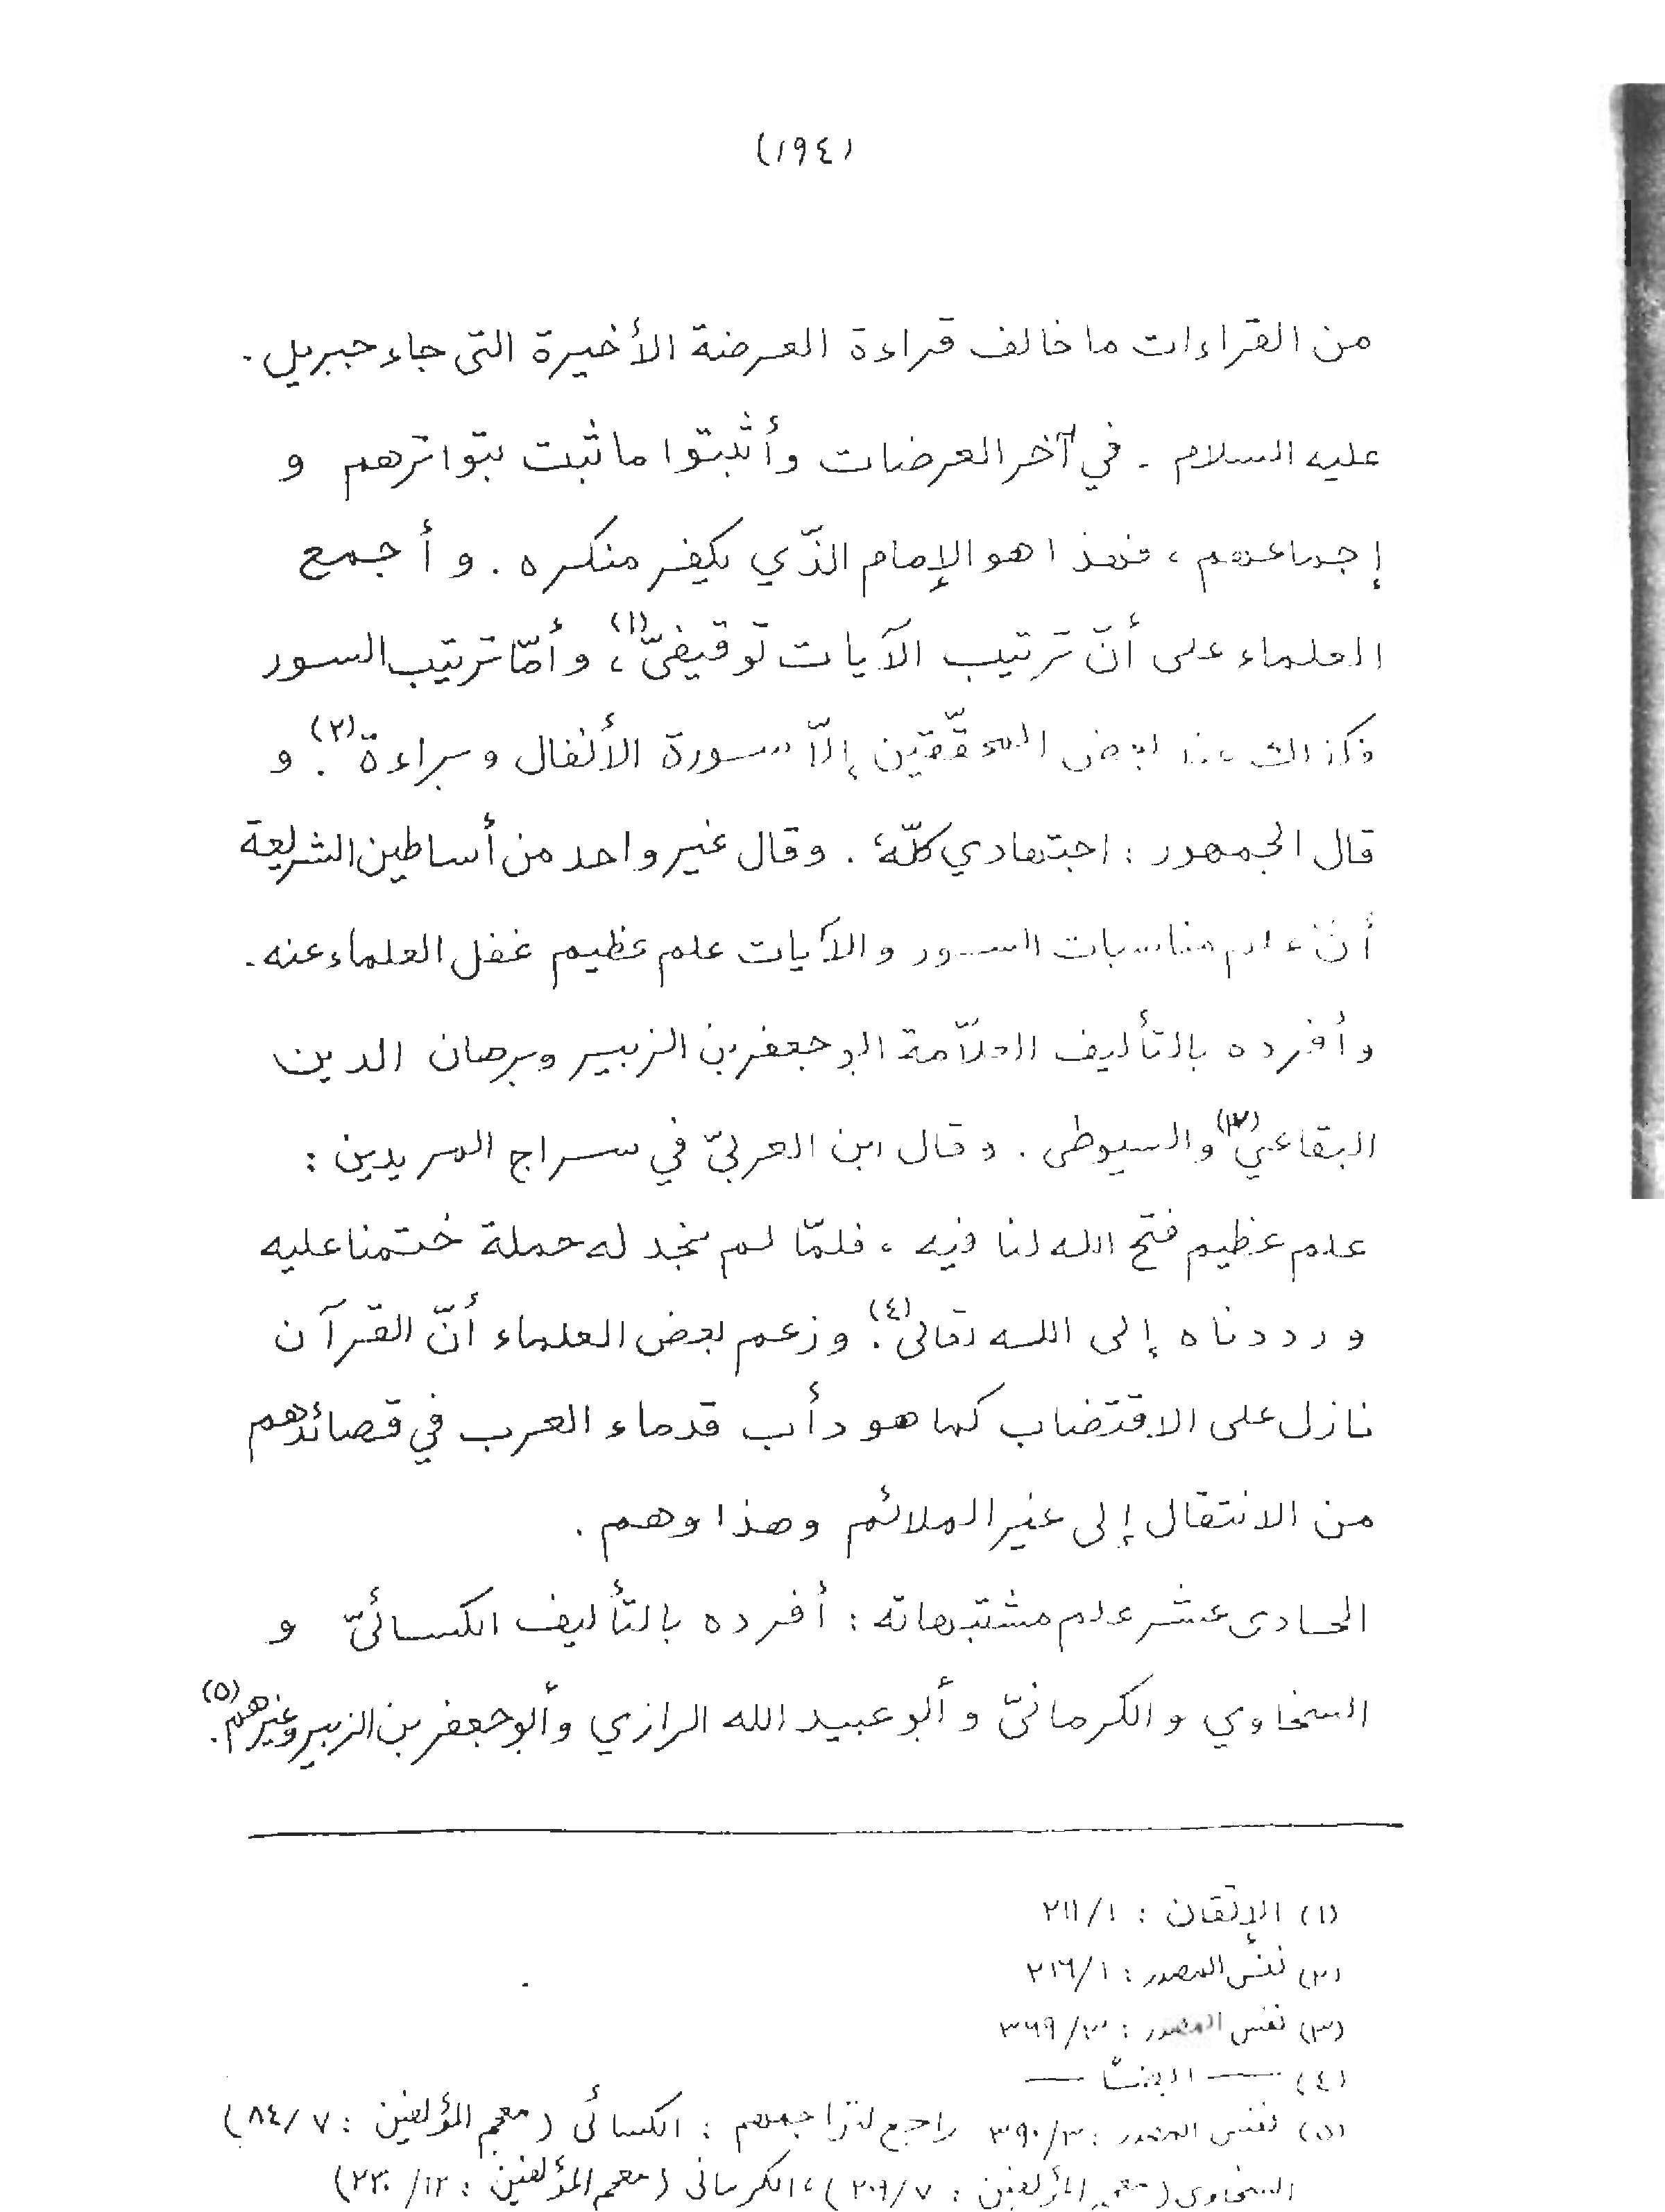 (١٩٤)
من القراءات ما خالف قراءة العرضة الأخيرة التى جاء جبريل -
عليه السلام - في آخر العرضات وأثبتوا ما ثبت بتواترهم و
إجماعهم ، فهذا هو الإمام الذّي يكفر منكره . و أجمع
العلماء على أنّ ترتيب الآيات توقيفىّ(١)، وأمّا ترتيب السور
فكذالك عند بعض المحقّقين إلّا سورة الأنفال و براءة(٢). و
قال الجمهور : اجتهادي كلّه . وقال غير واحد من أساطين الشريعة
أنّ علم مناسبات السور و الآيات علم عظيم غفل العلماء عنه -
و أفرده بالتأليف العلاّمة ابو جعفر بن الزبير وبرهان الدين
البقاعي(٣) والسيوطى . وقال ابن العربيّ في سراج المريدين :
علم عظيم فتح الله لنا فيه ، فلمّا لم نجد له حملة ختمنا عليه
و رددناه إلى اللـه تعالى(٤). و زعم بعض العلماء أنّ القرآن
نازل على الاقتضاب كما هو دأب قدماء العرب في قصائدهم
من الانتقال إلى غير الملائم وهذا وهم .
الحادى عشر علم مشتبهاته : أفرده بالتأليف الكسائىّ و
السخاوي و الكرمانىّ و أبو عبيد الله الرازي وأبو جعفر بن الزبير وغيرهم(٥).
(١) الإتقان : ٢١١/١
(٢) نفس المصدر : ٢١٦/١
(٣) نفس المصدر : ٣٦٩/٣
(٤) — ايضًا —
(٥) نفس المصدر : ٣٩٠/٣ راجع لتراجمهم : الكسائى (معجم المؤلفين : ٨٤/٧)
السخاوى (معجم المؤلفين : ٢٠٩/٧) ، الكرمانى (معجم المؤلفين : ٢٣٠/١٢)